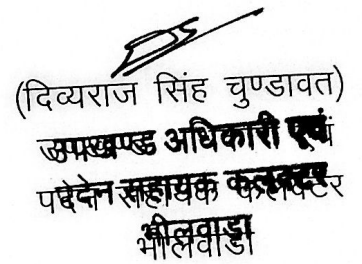 (दिव्यराज सिंह चुण्डावत)
उपखण्ड अधिकारी एवं
पदेन सहायक कलक्टर
भीलवाड़ा